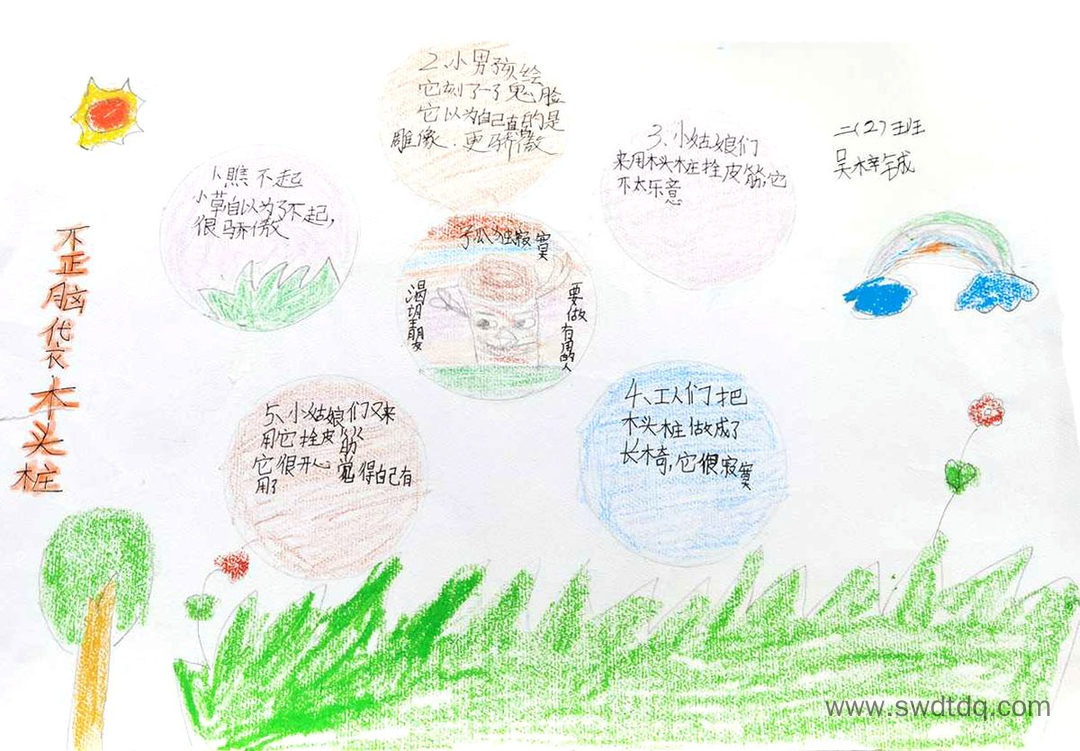 歪脑袋木头桩
1、瞧不起
小草自以为了不起,
很骄傲
2、小男孩绘
它刻了一个鬼脸
它以为自己真的是
雕像.更骄傲
3、小姑娘们
来用木头桩拴皮筋,它
不太乐意
二(2)班
孤独寂寞
渴望朋友
要做
有用的人
4、工人们把
木头桩做成了
长椅,它很寂寞
5、小姑娘们又来
用它拴皮筋
它很开心觉得自己有
用了
www.swdtdq.com